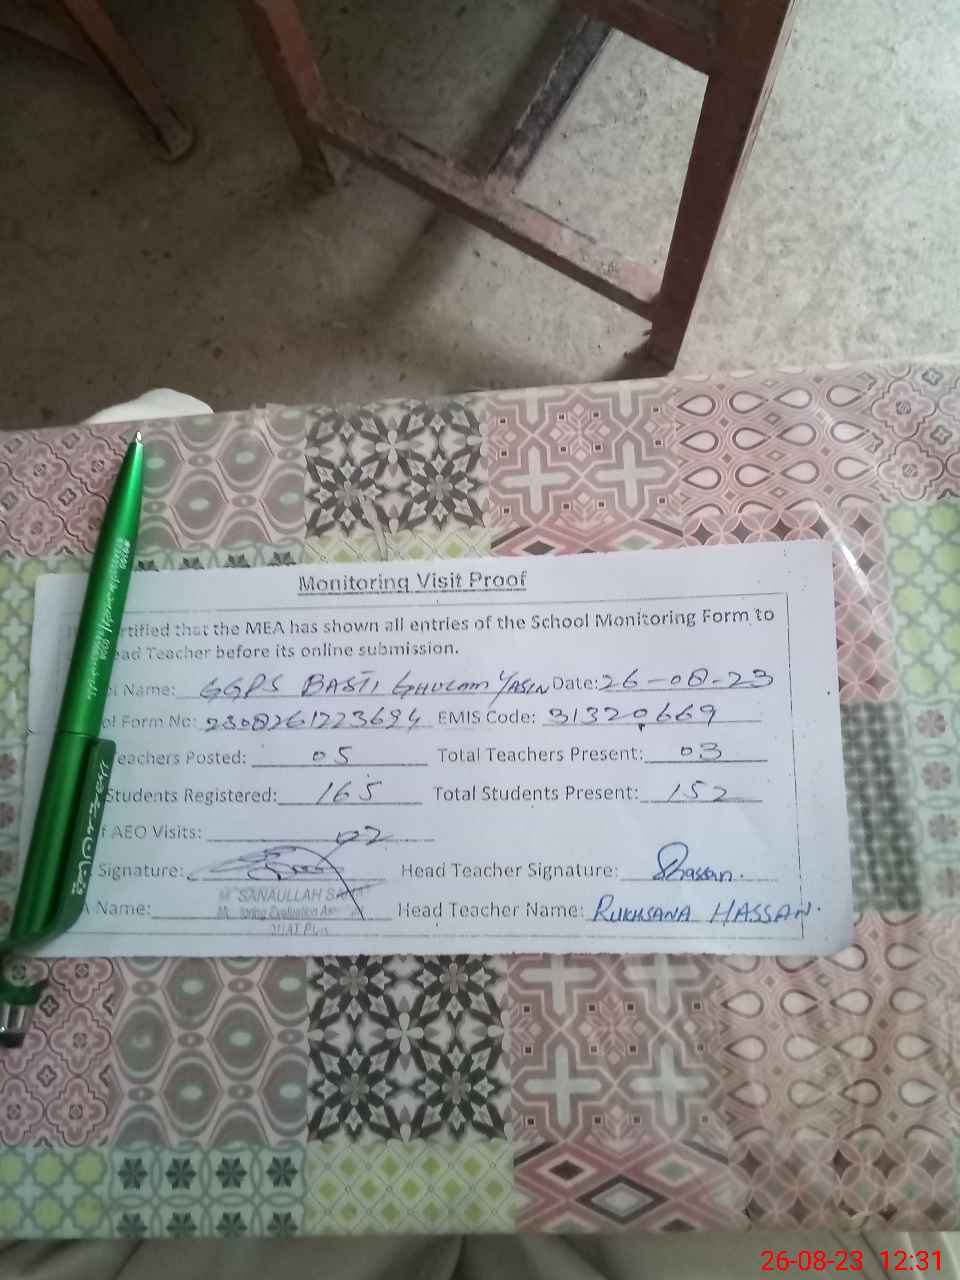 Monitoring Visit Proof
rtified that the MEA has shown all entries of the School Monitoring Form to
ead Teacher before its online submission.
Name: GGPS BASTI GHULAM YASIN Date: 26-08-23
ol Form No: 2308261223694 EMIS Code: 31320669
Teachers Posted: 05 Total Teachers Present: 03
Students Registered: 165 Total Students Present: 152
f AEO Visits: 02
Signature: Head Teacher Signature: Rhassan.
SANAULLAH
A Name: Head Teacher Name: RUKHSANA HASSAN.
26-08-23 12:31